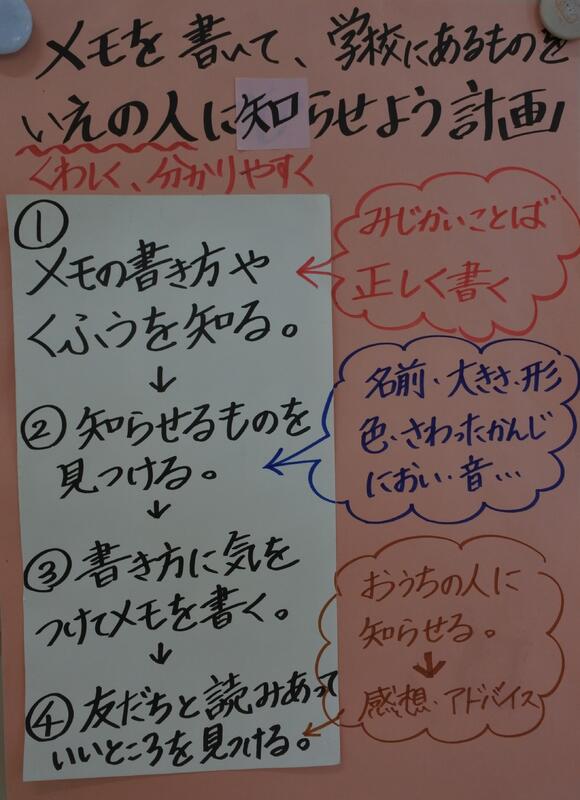 メモを書いて、学校にあるものを
いえの人に知らせよう計画
くわしく、分かりやすく
①
メモの書き方や
くふうを知る。
↓
②知らせるものを
見つける。
↓
③書き方に気を
つけてメモを書く。
↓
④友だちと読みあって
いいところを見つける。
みじかいことば
正しく書く
名前・大きさ・形
色・さわったかんじ
におい・音…
おうちの人に
知らせる。
↓
感想・アドバイス